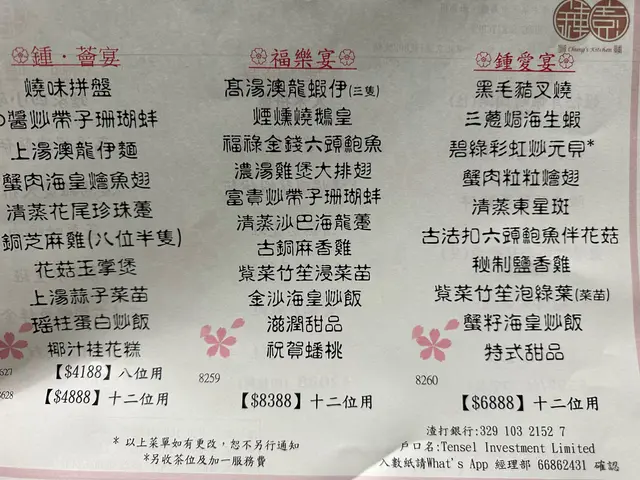 Chung's Kitchen
鍾·薈宴
燒味拼盤
醬炒帶子珊瑚蚌
上湯澳龍伊麵
蟹肉海皇燴魚翅
清蒸花尾珍珠躉
銅芝麻雞(八位半隻)
花菇玉掌煲
上湯蒜子菜苗
瑶柱蛋白炒飯
椰汁桂花糕
627 【$4188】八位用
628 【$4888】十二位用
福樂宴
髙湯澳龍蝦伊(三隻)
煙燻燒鵝皇
福祿金錢六頭鮑魚
濃湯雞煲大排翅
富貴炒帶子珊瑚蚌
清蒸沙巴海龍躉
古銅麻香雞
紫菜竹笙浸菜苗
金沙海皇炒飯
滋潤甜品
祝賀蟠桃
8259
【$8388】十二位用
鍾愛宴
黑毛豬叉燒
三蔥焗海生蝦
碧綠彩虹炒元貝*
蟹肉粒粒燴翅
清蒸東星斑
古法扣六頭鮑魚伴花菇
秘制鹽香雞
紫菜竹笙泡綠葉(菜苗)
蟹籽海皇炒飯
特式甜品
8260
【$6888】十二位用
* 以上菜單如有更改，恕不另行通知
*另收茶位及加一服務費
渣打銀行:329 103 2152 7
戶口名:Tensel Investment Limited
入數紙請What's App 經理部 66862431 確認